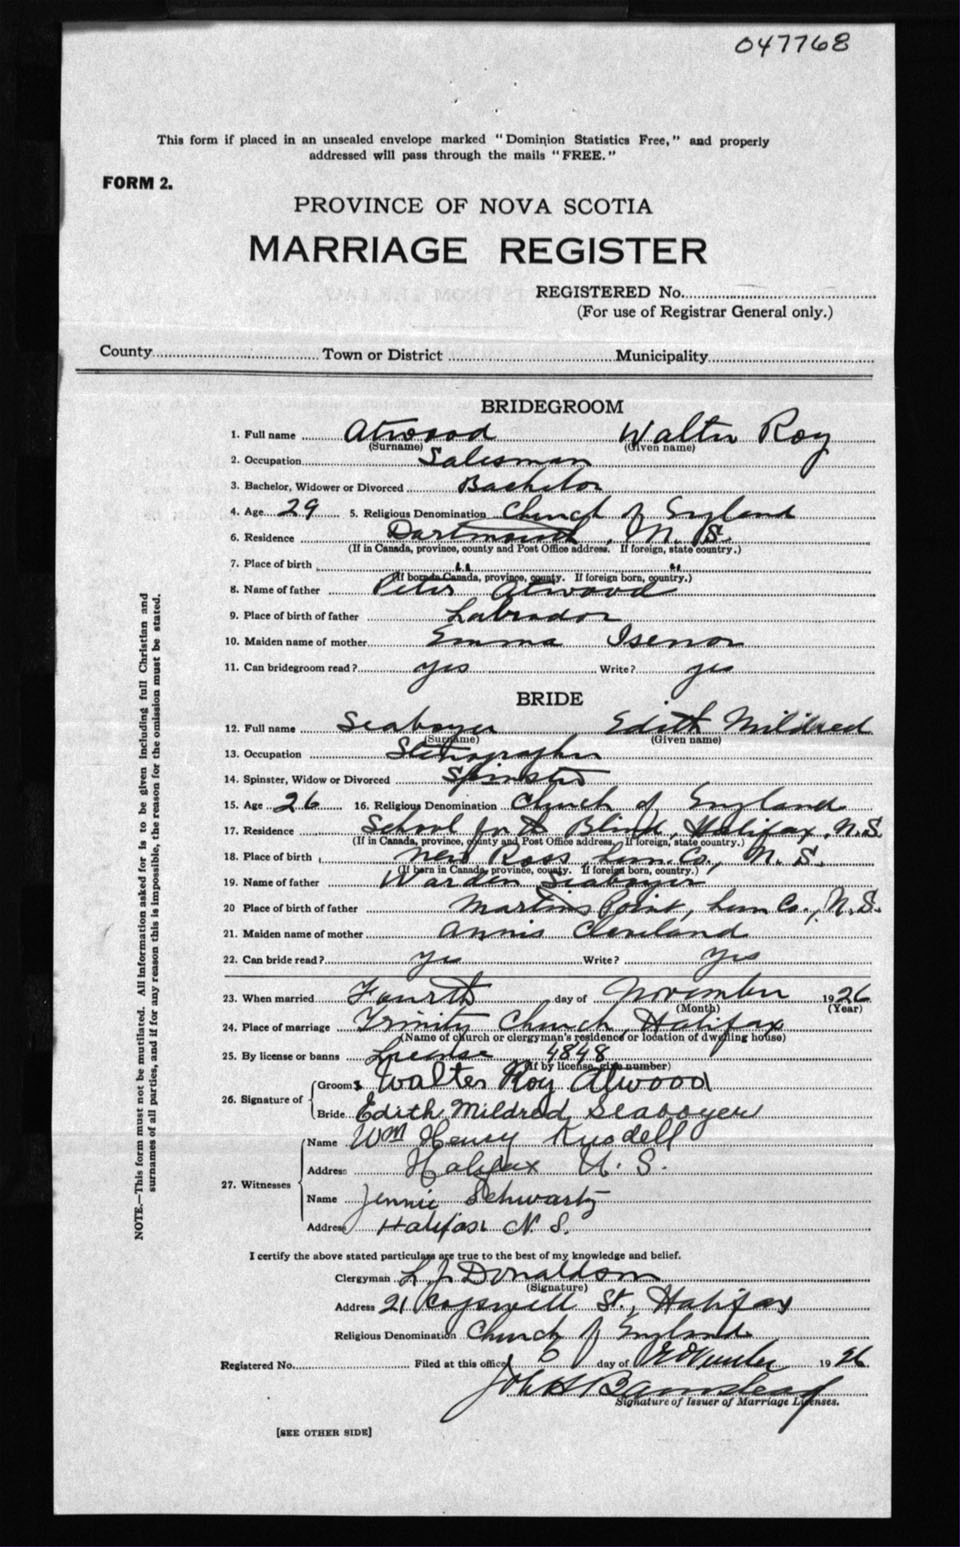 047768
This form if placed in an unsealed envelope marked "Dominion Statistics Free," and properly
addressed will pass through the mails "FREE."
FORM 2.
PROVINCE OF NOVA SCOTIA
MARRIAGE REGISTER
REGISTERED No.
(For use of Registrar General only.)
County Town or District Municipality
BRIDEGROOM
1. Full name Atwood Walter Roy
(Surname) (Given name)
2. Occupation Salesman
3. Bachelor, Widower or Divorced Bachelor
4. Age 29 5. Religious Denomination Church of England
6. Residence Dartmouth, N. S.
(If in Canada, province, county and Post Office address. If foreign, state country.)
7. Place of birth " "
(If born in Canada, province, county. If foreign born, country.)
8. Name of father Peter Atwood
9. Place of birth of father Labrador
10. Maiden name of mother Emma Isenor
11. Can bridegroom read? yes Write? yes
BRIDE
12. Full name Seaboyer Edith Mildred
(Surname) (Given name)
13. Occupation Stenographer
14. Spinster, Widow or Divorced Spinster
15. Age 26 16. Religious Denomination Church of England
17. Residence School for the Blind, Halifax, N.S.
(If in Canada, province, county and Post Office address. If foreign, state country.)
18. Place of birth New Ross, Lun. Co., N. S.
(If born in Canada, province, county. If foreign born, country.)
19. Name of father Warden Seaboyer
20 Place of birth of father Martins Point, Lun Co., N.S.
21. Maiden name of mother Annis Cleveland
22. Can bride read? yes Write? yes
23. When married Fourth day of November 1926
(Month) (Year)
24. Place of marriage Trinity Church, Halifax
(Name of church or clergyman's residence or location of dwelling house)
25. By license or banns License 4848
(If by license, give number)
26. Signature of Groom Walter Roy Atwood
Bride Edith Mildred Seaboyer
27. Witnesses Name Wm Henry Knodell
Address Halifax N. S.
Name Jennie Schwartz
Address Halifax N. S.
I certify the above stated particulars are true to the best of my knowledge and belief.
Clergyman L. J. Donaldson
(Signature)
Address 21 Cogswell St., Halifax
Religious Denomination Church of England
Registered No. Filed at this office 6 day of November 1926
Signature of Issuer of Marriage Licenses.
[SEE OTHER SIDE]
NOTE.—This form must not be mutilated. All information asked for is to be given including full Christian and
surnames of all parties, and if for any reason this is impossible, the reason for the omission must be stated.